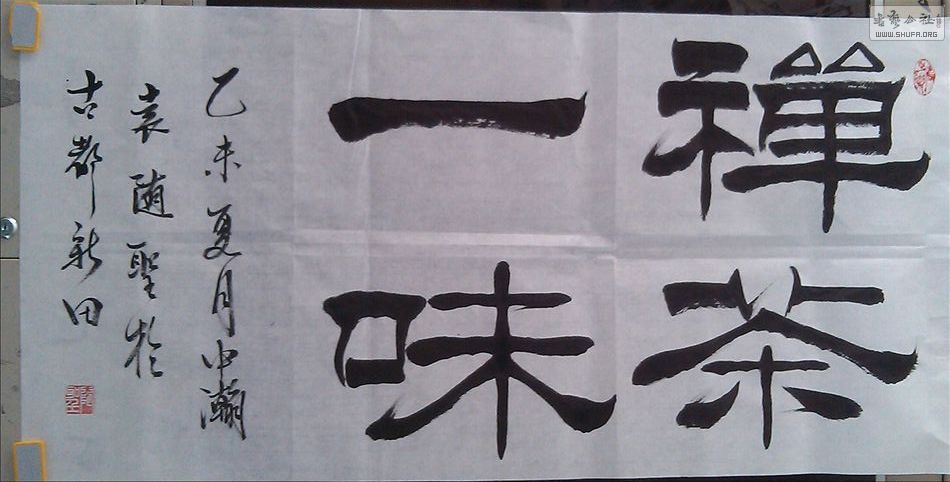 禪茶
一味
乙未夏月中瀚
袁随聖於
古都新田
WWW.SHUFA.ORG